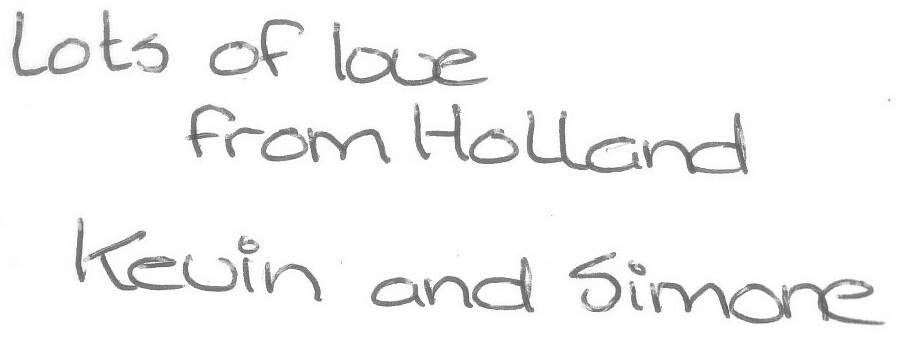 Lots of love
from Holland
Kevin and Simone